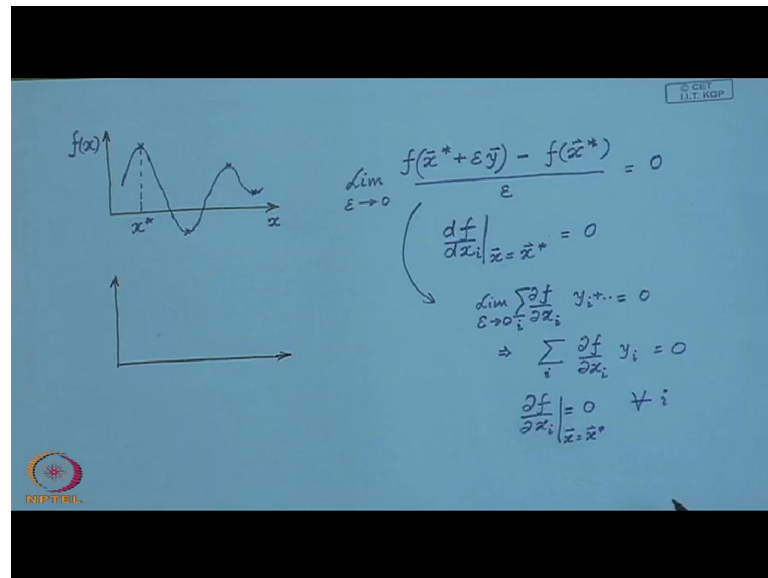 © CET
I.I.T. KGP
f(x)
x*
x
Lim ε→0 (f(x̄* + εȳ) - f(x̄*)) / ε = 0
df/dx_i |_{x̄ = x̄*} = 0
Lim ε→0 Σ_i ∂f/∂x_i y_i + .. = 0
⇒ Σ_i ∂f/∂x_i y_i = 0
∂f/∂x_i |_{x̄ = x̄*} = 0 ∀ i
NPTEL